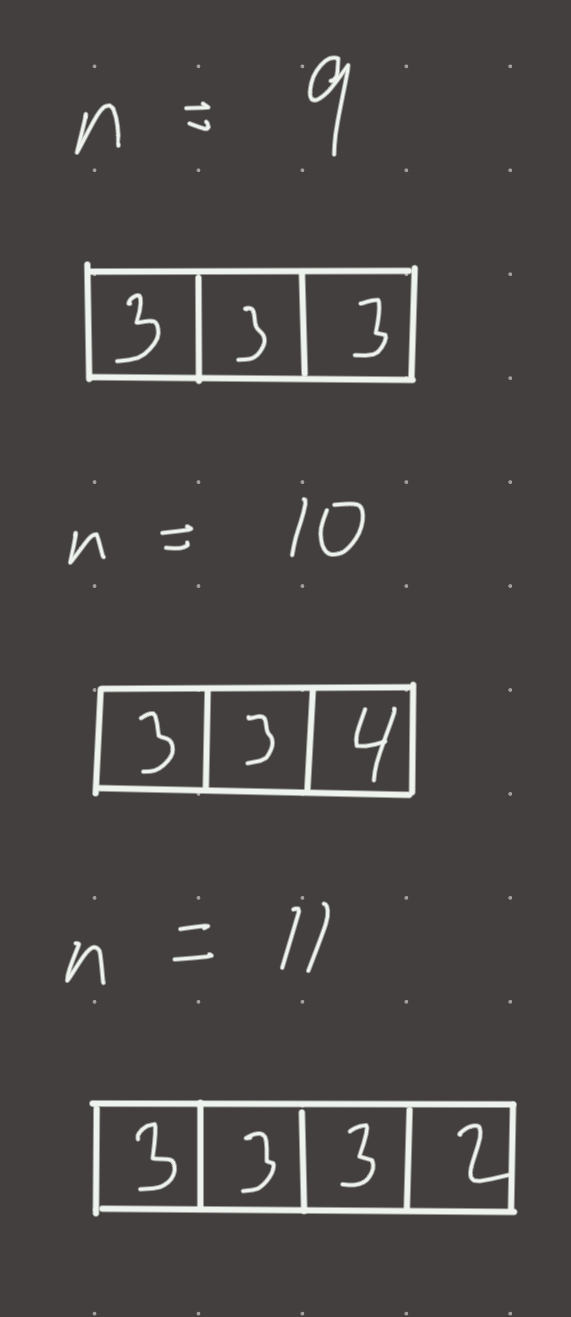 n = 9
3 3 3
n = 10
3 3 4
n = 11
3 3 3 2